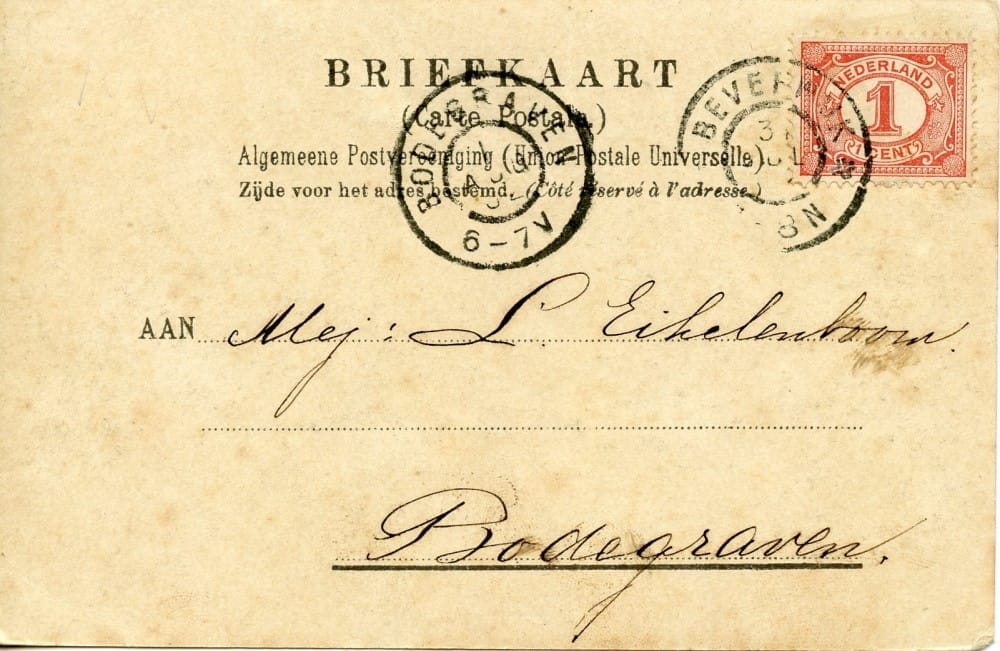 BRIEFKAART
(Carte Postale.)
Algemeene Postvereeniging (Union Postale Universelle.)
Zijde voor het adres bestemd. (Côté réservé à l'adresse.)
BODEGRAVEN
1 AUG
6-7V
BEVERWIJK
8N
NEDERLAND
1
CENT
AAN Mej: L. Eikelenboom.
Bodegraven.